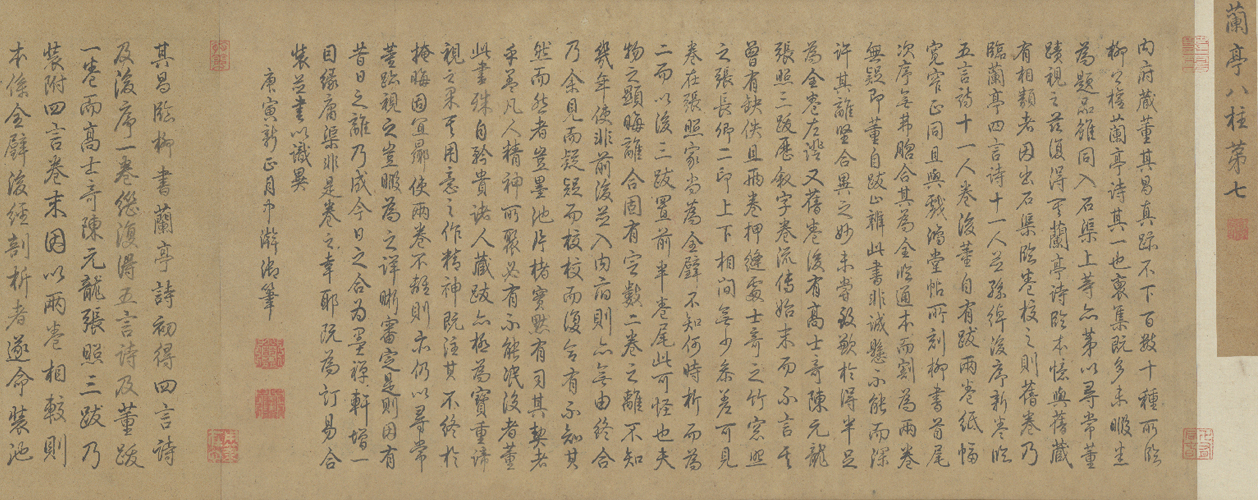 蘭亭八柱第七
內府藏董其昌真跡不下百數十種所臨
柳公權蘭亭詩其一也裒集既多未暇悉
為題品雖同入石渠上等亦第以尋常董
蹟視之茲復得其蘭亭詩臨本憶與舊藏
有相類者因出石渠臨卷校之則舊卷乃
臨蘭亭四言詩十一人並孫綽後序新卷臨
五言詩十一人卷後董自有跋兩卷紙幅
寬窄正同且與戲鴻堂帖所刻柳書首尾
次序無弗脗合其為全臨通本而割為兩卷
無疑即董自跋止雜此書非誠懸不能而深
許其離堅合異之妙未嘗致歉於得半足
為全卷左證又舊卷後有高士奇陳元龍
張照三跋歷叙字卷流傳始末而不言其
曾有缺佚且兩卷押縫處士奇之竹窓照
之張長卿二印上下相間無少參差可見
卷在張照家尚為全璧不知何時析而為
二而以後三跋置前半卷尾此可怪也夫
物之顯晦離合固有定數二卷之離不知
幾年使非前後並入內府則亦無由終合
乃余見而疑疑而校校而復合有不知其
然而然者豈墨池片楮冥默有司其契者
乎蓋凡人精神所聚必有不能泯沒者董
此書殊自矜貴諸人藏跋亦極為寶重諦
視之果其用意之作精神既注其不終於
掩晦固宜曏使兩卷不離則亦仍以尋常
董跡視之豈暇為之詳晰審定是則因有
昔日之離乃成今日之合為墨禪軒增一
目緣庸渠非是卷之幸耶既為訂易合
裝並書以識異
庚寅新正月中澣御筆
其昌臨柳書蘭亭詩初得四言詩
及後序一卷繼復得五言詩及董跋
一卷而高士奇陳元龍張照三跋乃
裝附四言卷末因以兩卷相較則
本係全璧後經剖析者遂命裝池